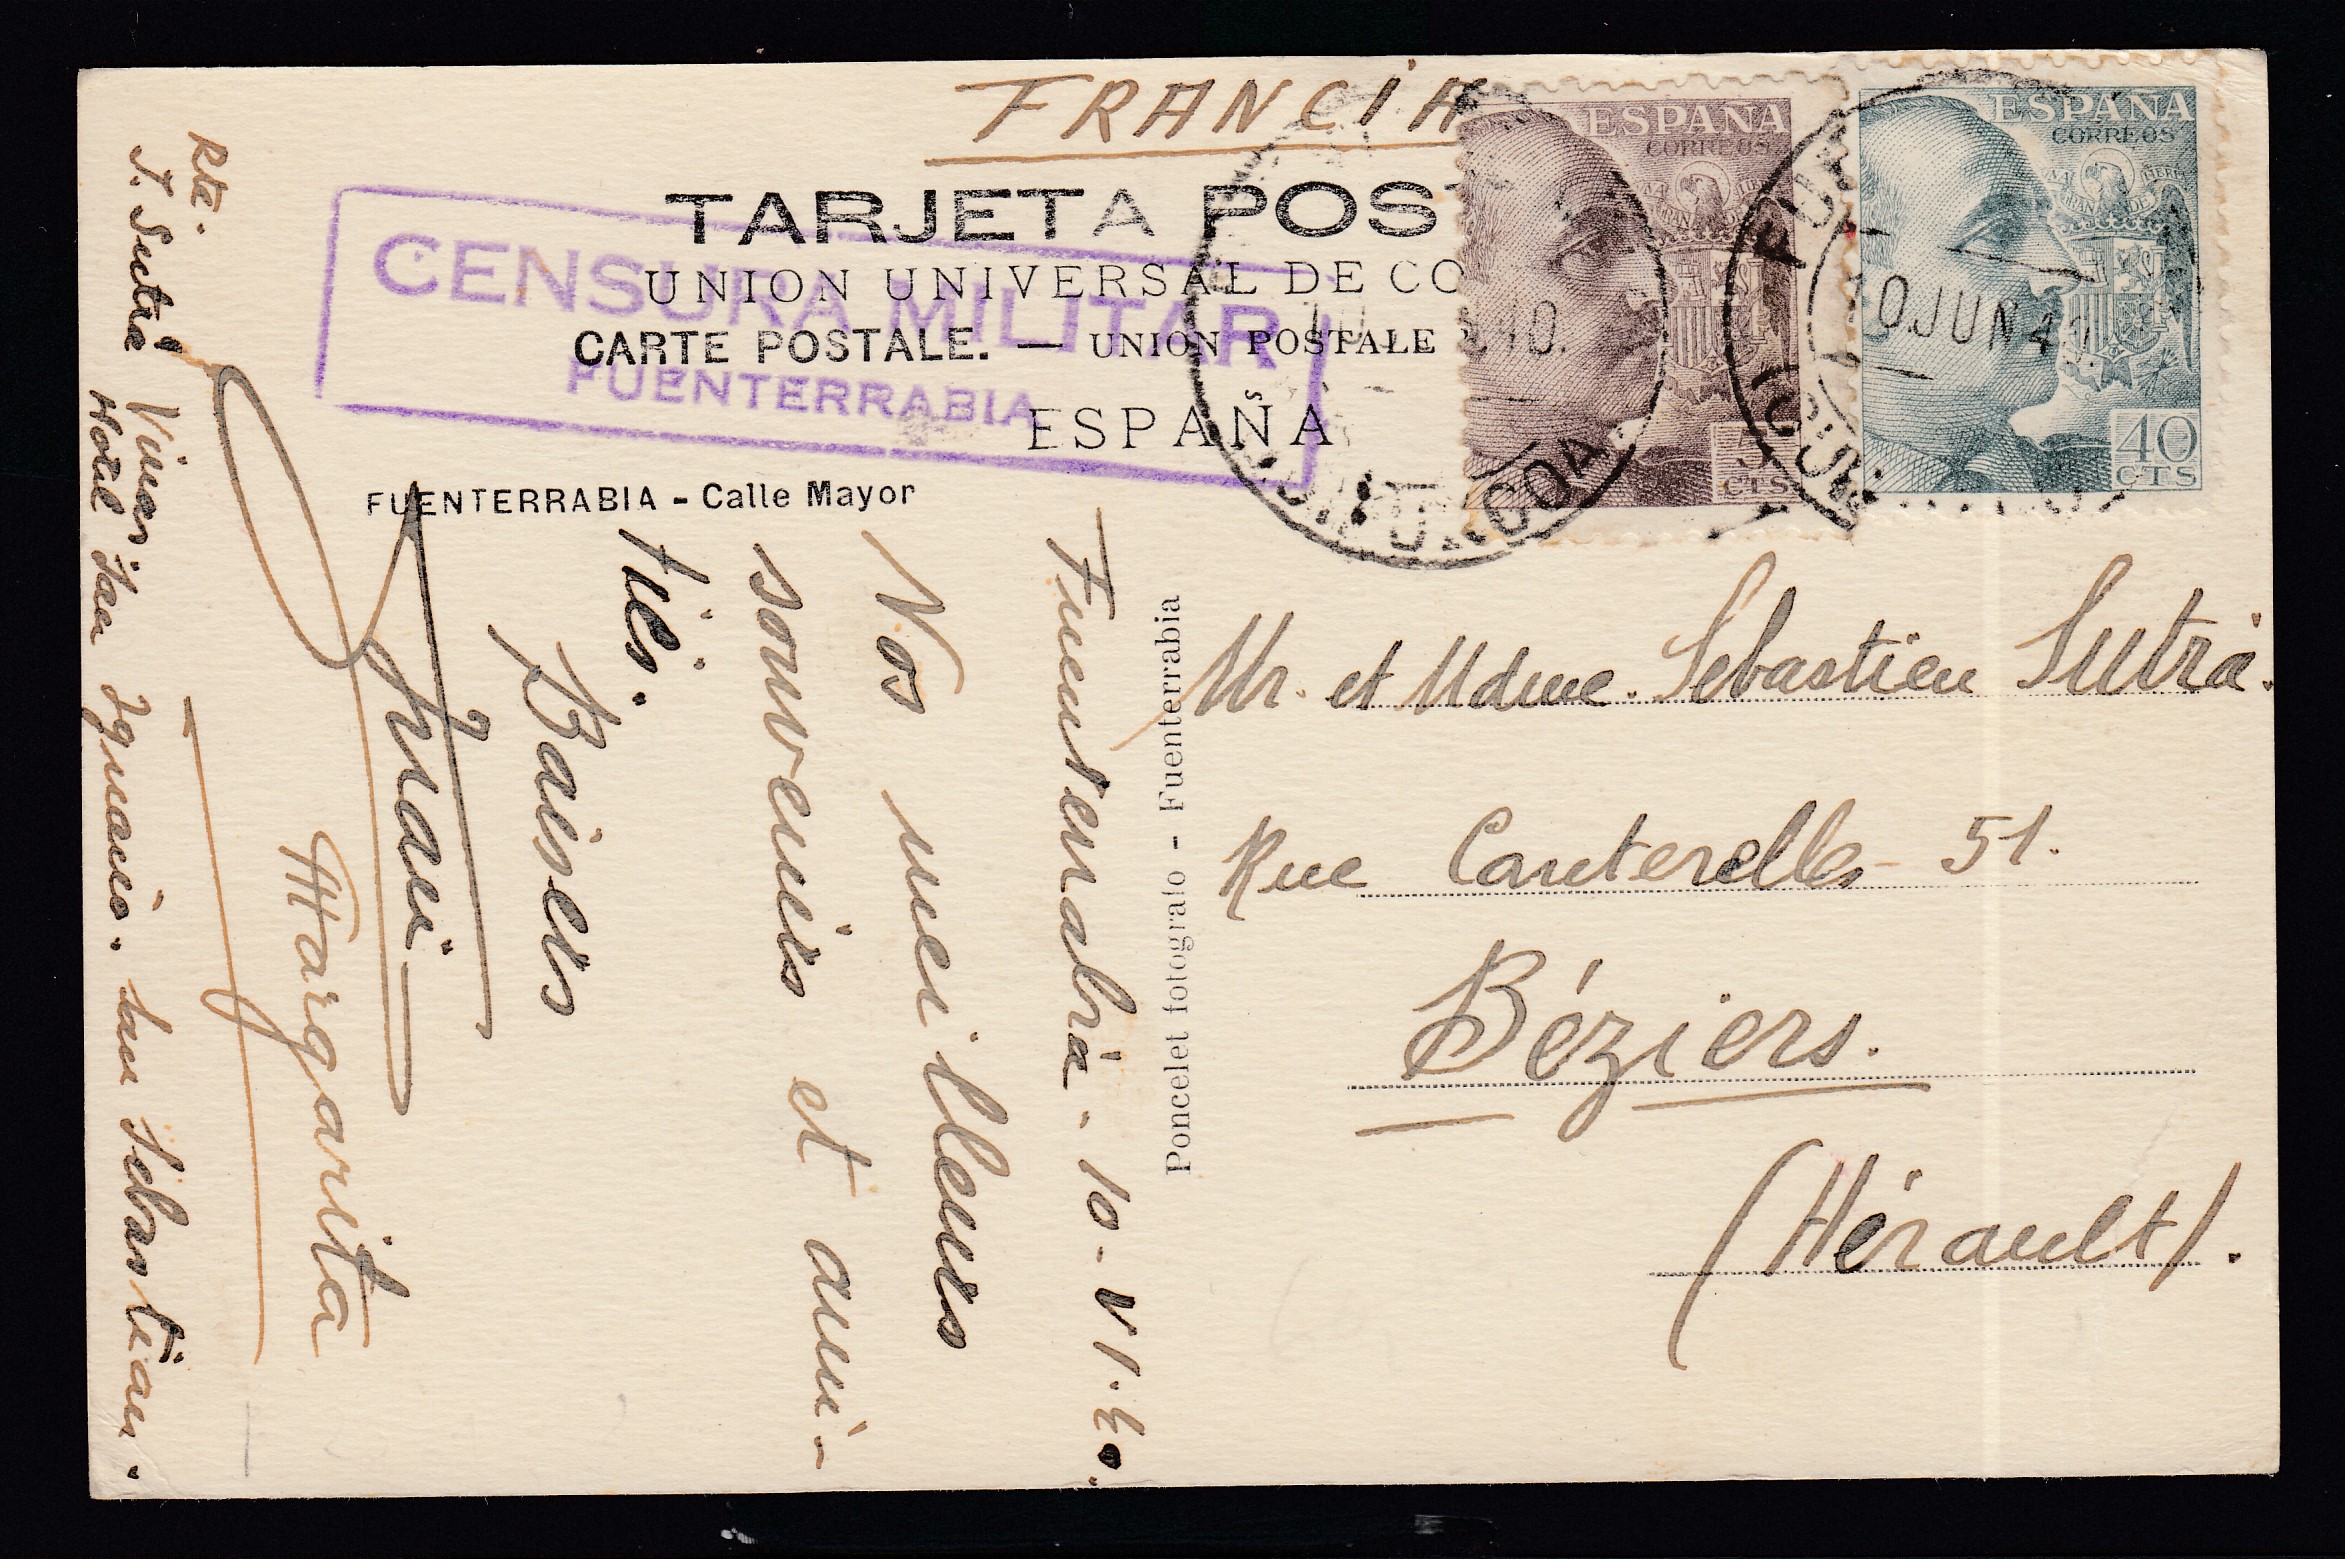 FRANCIA
TARJETA POS
UNION UNIVERSAL DE CO
CARTE POSTALE. — UNION POSTALE
ESPAÑA
CENSURA MILITAR
FUENTERRABIA
FUENTERRABIA - Calle Mayor
ESPAÑA
CORREOS
5
CTS
ESPAÑA
CORREOS
40
CTS
10 JUN 40
GUIPUZCOA
Fuenterrabia - 10 - VI - 40.
Nos meilleurs
souvenirs et ami-
tiés.
Baisers
Juan
Margarita
Rte.
J. Sutrá Viñas
Hotel San Ignacio. San Sebastian.
Poncelet fotografo - Fuenterrabia
Mr. et Mdme. Sebastien Sutrá.
Rue Canterelles 51.
Béziers.
(Hérault).